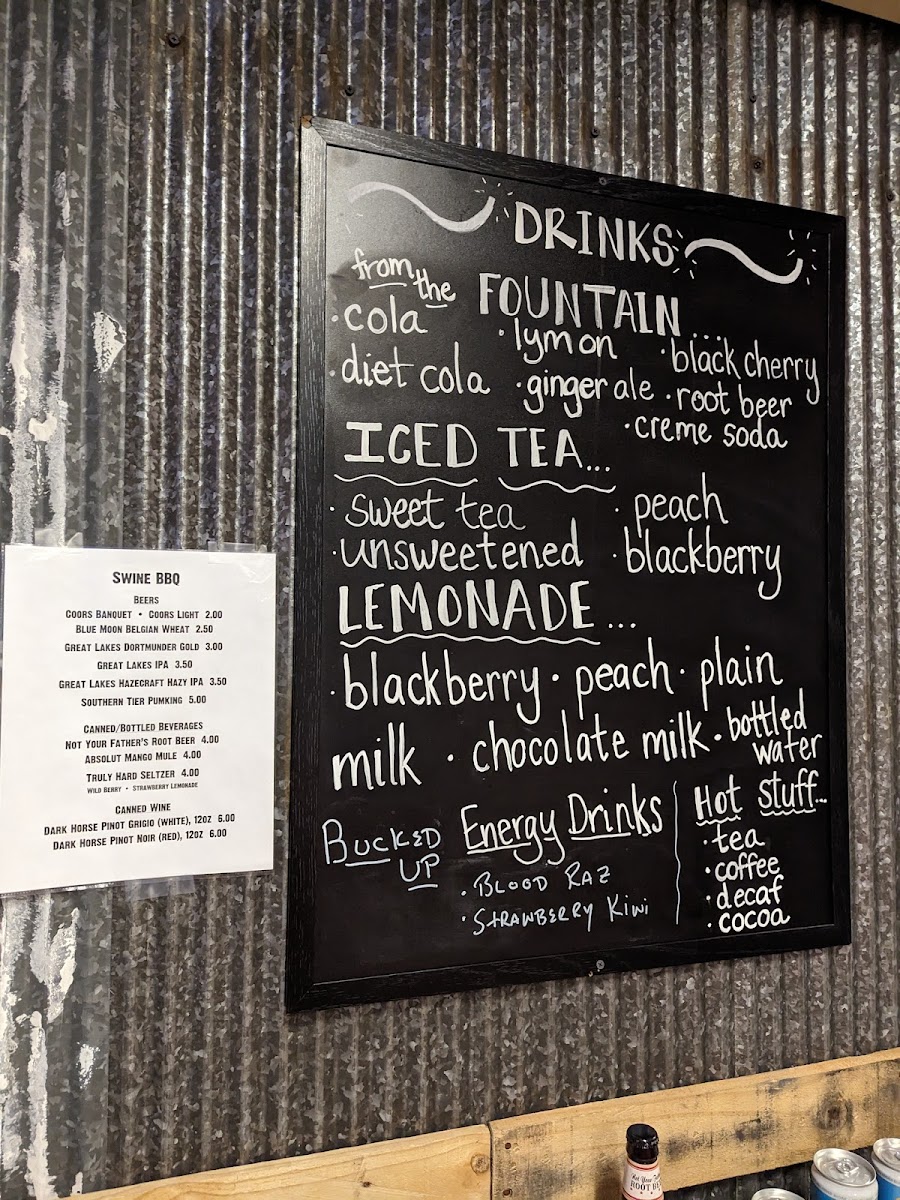 DRINKS
from the FOUNTAIN...
· cola · lymon · black cherry
· diet cola · ginger ale · root beer
· creme soda
ICED TEA...
· sweet tea · peach
· unsweetened · blackberry
LEMONADE...
· blackberry · peach · plain
milk · chocolate milk · bottled water
BUCKED UP Energy Drinks
· BLOOD RAZ
· STRAWBERRY KIWI
Hot Stuff...
· tea
· coffee
· decaf
· cocoa
SWINE BBQ
BEERS
COORS BANQUET • COORS LIGHT 2.00
BLUE MOON BELGIAN WHEAT 2.50
GREAT LAKES DORTMUNDER GOLD 3.00
GREAT LAKES IPA 3.50
GREAT LAKES HAZECRAFT HAZY IPA 3.50
SOUTHERN TIER PUMKING 5.00
CANNED/BOTTLED BEVERAGES
NOT YOUR FATHER'S ROOT BEER 4.00
ABSOLUT MANGO MULE 4.00
TRULY HARD SELTZER 4.00
WILD BERRY • STRAWBERRY LEMONADE
CANNED WINE
DARK HORSE PINOT GRIGIO (WHITE), 12OZ 6.00
DARK HORSE PINOT NOIR (RED), 12OZ 6.00
ROOT BE